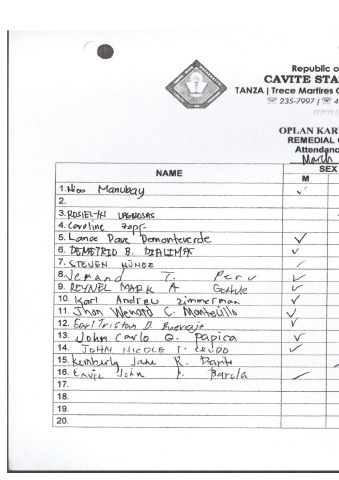 Republic o
CAVITE STA
TANZA | Trece Martires C
☏ 235-7997 / ☏ 4
www.c
OPLAN KAR
REMEDIAL
Attendanc
March
NAME
SEX
M
1. Nico Manubay
2.
3. ROSIEL-IN
4. Caroline
5. Lance Dave Demonteverde
6. DEMETRIO B.
7. STEVEN NÚÑEZ
8. Jemand T. Peru
9. REYNEL MARK A
10. Karl Andrew Zimmerman
11. Jhon Wenard C. Montecillo
12. Earl Tristan D.
13. John Carlo Q. Papica
14. JOHN NICOLE T.
15. Kimberly Jane R.
16. John Barola
17.
18.
19.
20.